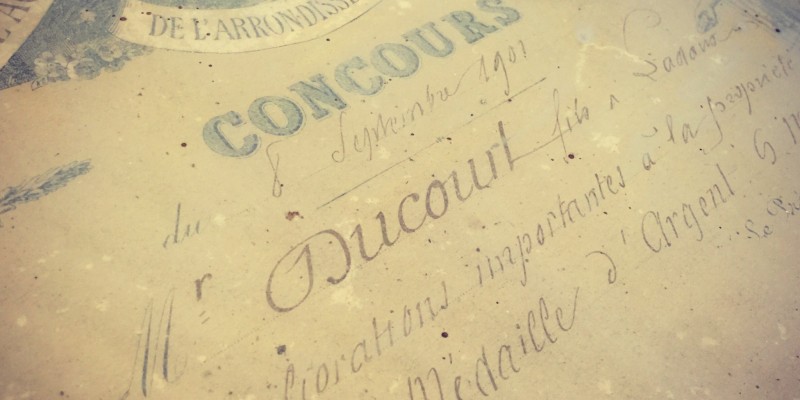 DE L'ARRONDISSE
CONCOURS
du 8 Septembre 1901
Mr Ducourt fils à
liorations importantes à la propriété
Médaille d'Argent